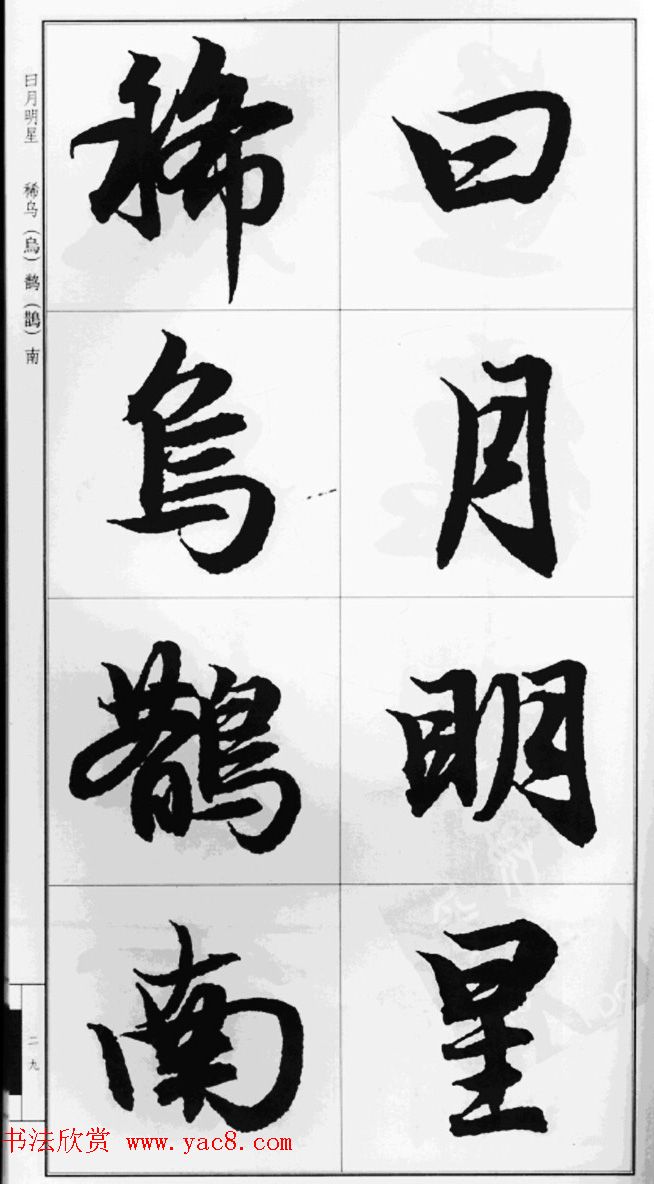 曰月明星
稀烏鵲南
曰月明星　稀乌(烏)鹊(鵲)南
二九
书法欣赏 www.yac8.com